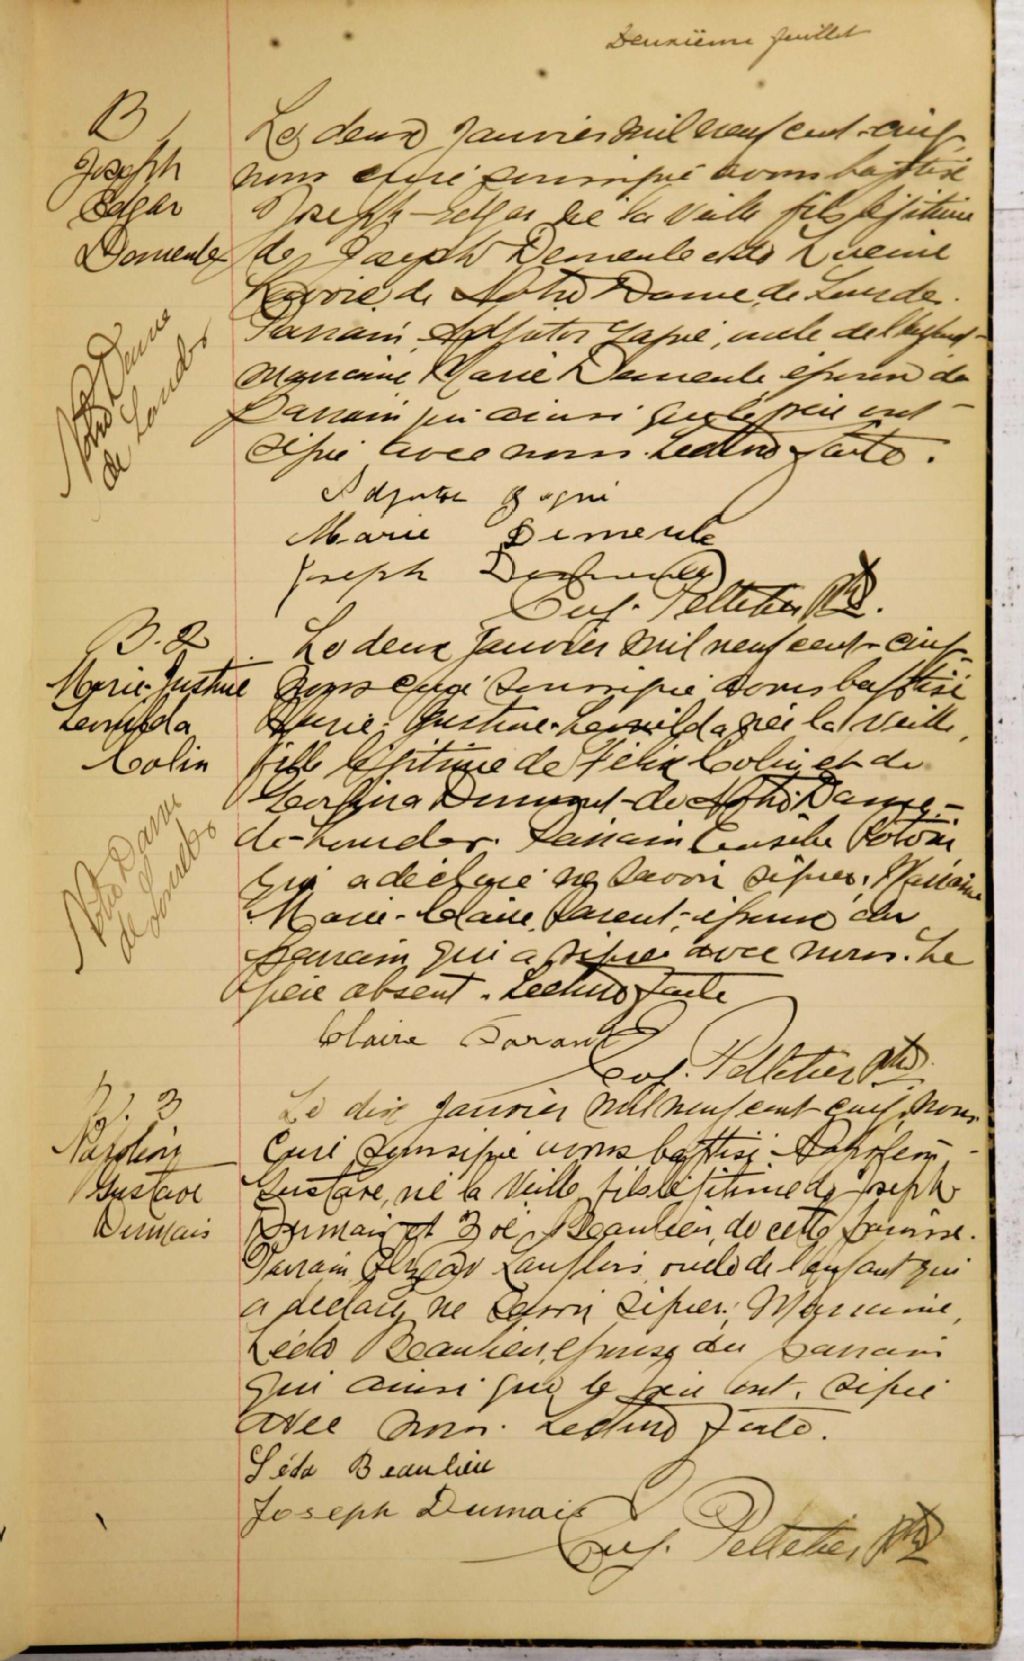 Deuxième feuillet
B
Joseph
Edgar
Demeule
Notre Dame
de Lourdes
Le deux Janvier mil neuf cent-cinq
nous curé soussigné avons baptisé
Joseph-Edgar né la veille fils légitime
de Joseph Demeule et de
Lavoie de Notre Dame de Lourdes.
Parrain Adjutor Gagné, oncle de l'enfant-
marraine Marie Demeule épouse du
Parrain qui ainsi que le père ont
signé avec nous. Lecture faite.
Adjutor Gagné
Marie Demeule
Joseph Demeule
Eug. Pelletier Ptre.
B. 2
Marie-Justine
Leonilda
Colin
Notre Dame
de Lourdes
Le deux Janvier mil neuf cent-cinq
nous curé soussigné avons baptisé
Marie-Justine-Leonilda née la veille,
fille légitime de Félix Colin et de
Georgina Dumont de Notre-Dame-
de-Lourdes. Parrain Eusèbe
qui a déclaré ne savoir signer, Marraine
Marie-Claire Parent, épouse du
parrain qui a signé avec nous. Le
père absent. Lecture faite
Claire Parant
Eug. Pelletier Ptre
B. 3
Napoléon
Gustave
Dumais
Le dix Janvier mil neuf cent cinq, nous
Curé soussigné avons baptisé Napoléon-
Gustave, né la veille, fils légitime de Joseph
Dumais et Zoé Beaulieu, de cette paroisse.
Parrain Elzéar Langlois, oncle de l'enfant qui
a déclaré ne savoir signer; Marraine,
Léda Beaulieu, épouse du parrain
qui ainsi que le père ont signé
avec nous. Lecture faite.
Léda Beaulieu
Joseph Dumais
Eug. Pelletier Ptre